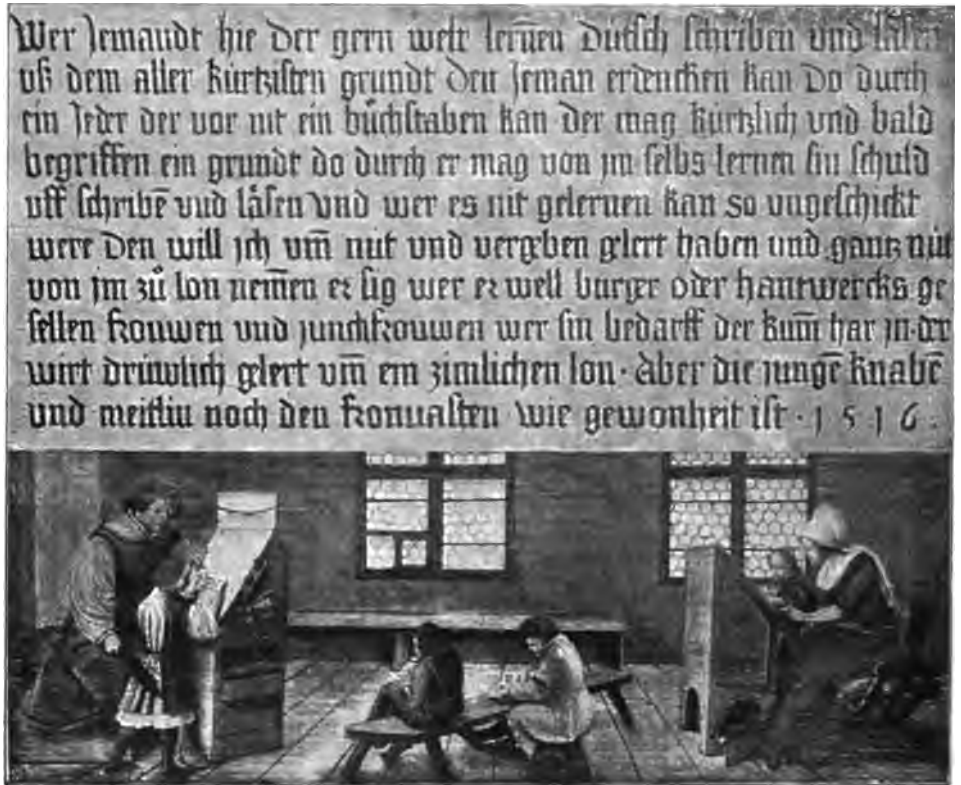 Wer Jemandt hie der gern welt lernen Dütsch schriben und läsen
uß dem aller kürtzisten grundt den Jeman erdencken kan Do durch
ein Jeder der vor nit ein buͦchstaben kan der mag kürtzlich und bald
begriffen ein grundt do durch er mag von jm selbs lernen sin schuld
uff schribē und läsen und wer es nit gelernen kan so ungeschickt
were Den will jch um̄ nüt und vergeben gelert haben und gantz nüt
von jm zuͦ lon nem̄en er sig wer er well burger oder hantwercks ge
sellen frouwen und junckfrouwen wer sin bedarff der kum̄ har jn der
wirt drüwlich gelert um̄ ein zimlichen lon · Aber die jungē knabē
und meitlin noch den fronuasten wie gewonheit ist · 1 5 1 6 ·